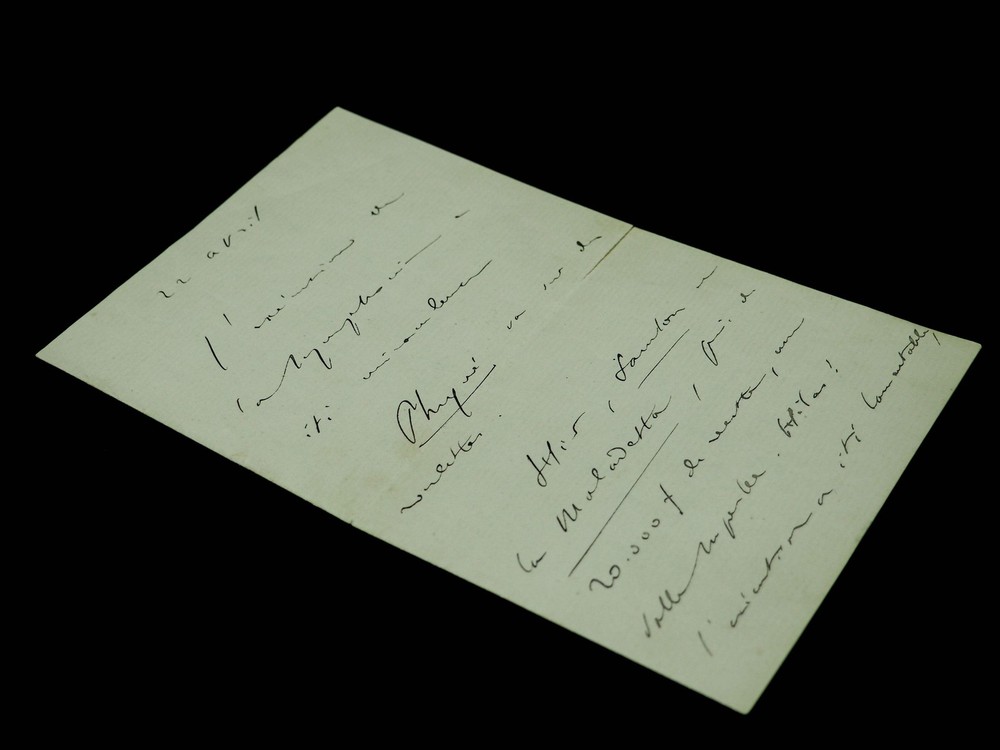 22 avril
l'exécution de
la symphonie a
été miraculeuse
Phryné va sur des
roulettes.
Hier, Samson et
la Maladetta, de
20.000 f de recette, une
salle superbe. Hélas!
l'exécution a été lamentable,